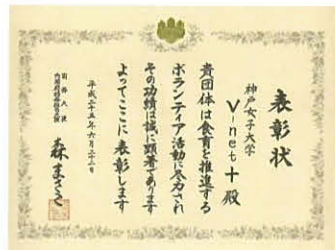 表彰状
神戸女子大学
V-net+殿
貴団体は食育を推進する
ボランティア活動に尽力され
その功績は誠に顕著であります
よってここに表彰します
平成二十五年六月二十二日
国務大臣
森まさこ